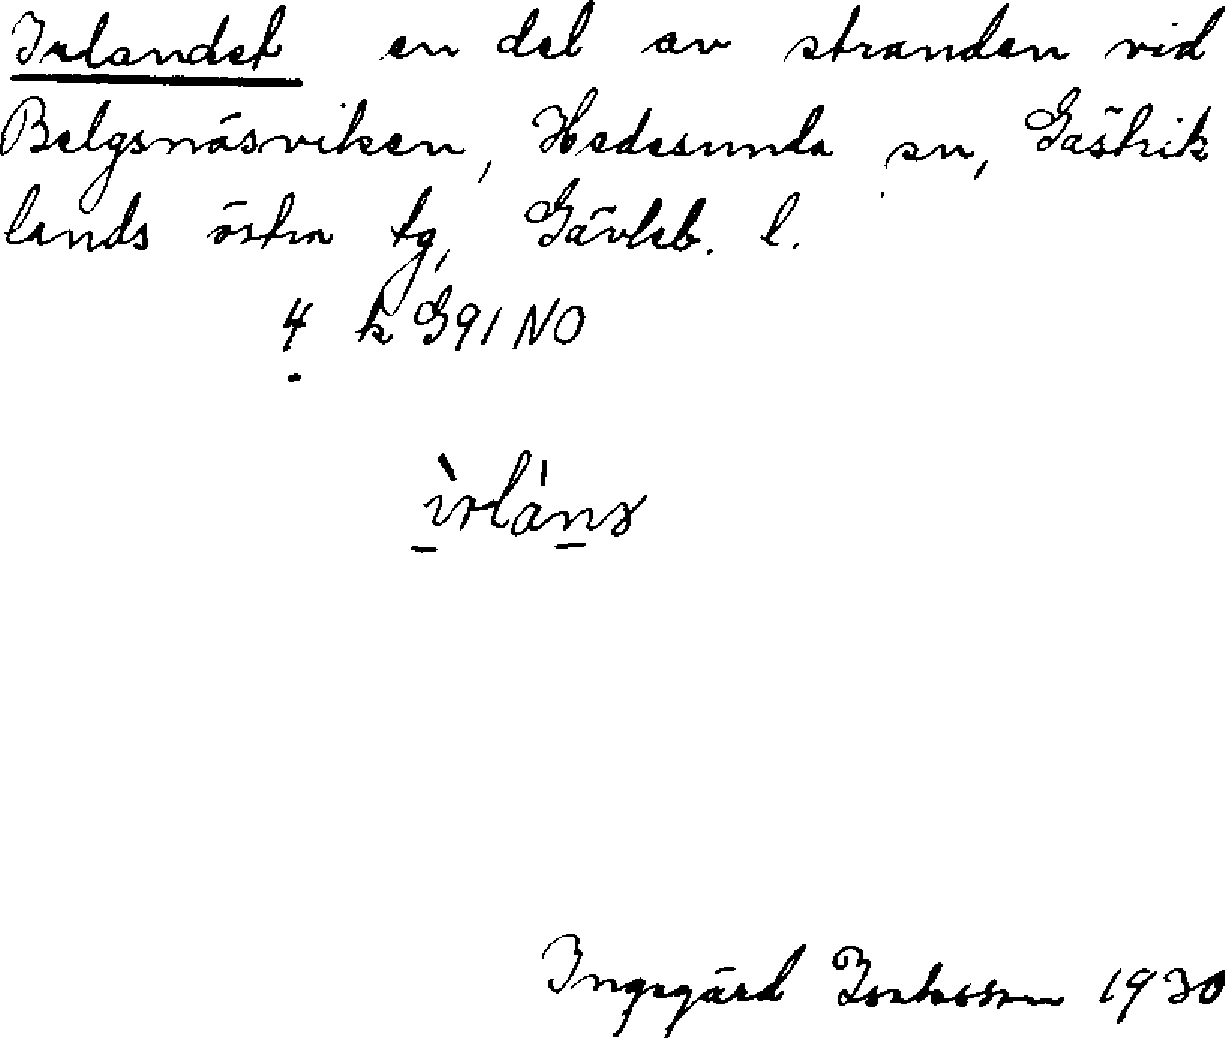 Irlandet en del av stranden vid
Belgsnäsviken, Hedesunda sn, Gästrik
lands östra tg, Gävleb. l.
4 k G91 NO
ìrlánɤ
Ingegärd 1930